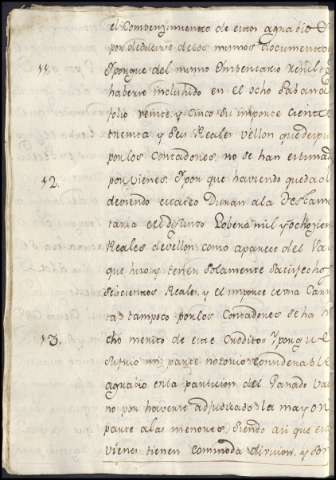 el Combenzimiento de estos agravios
por deducirse de los mismos Documentos
11. Y porque del mismo Imbentario resulta
haberse incluhido en el ocho Sabanas
folio veinte y Cinco Su importe Ciento
treinta y seis Reales vellon que despues
por los Contadores no se han estimado
12. por vienes. Y por que haviendo quedado
deviendo Duran ala Testamen
taria el difunto mil y ochocien
Reales de vellon como aparece del Va
que hizo y tienen Solamente Satisfechos
Seiscientos Reales y el importe
tas tampoco por los Contadores se ha
13. cho merito de este Credito: Y porque
Sufrio mi parte notorio considerable
agravio en la particion del Ganado Va
no por haverse adjudicado la mayor
parte a las menores, siendo asi que
vienes tienen commoda division, y por